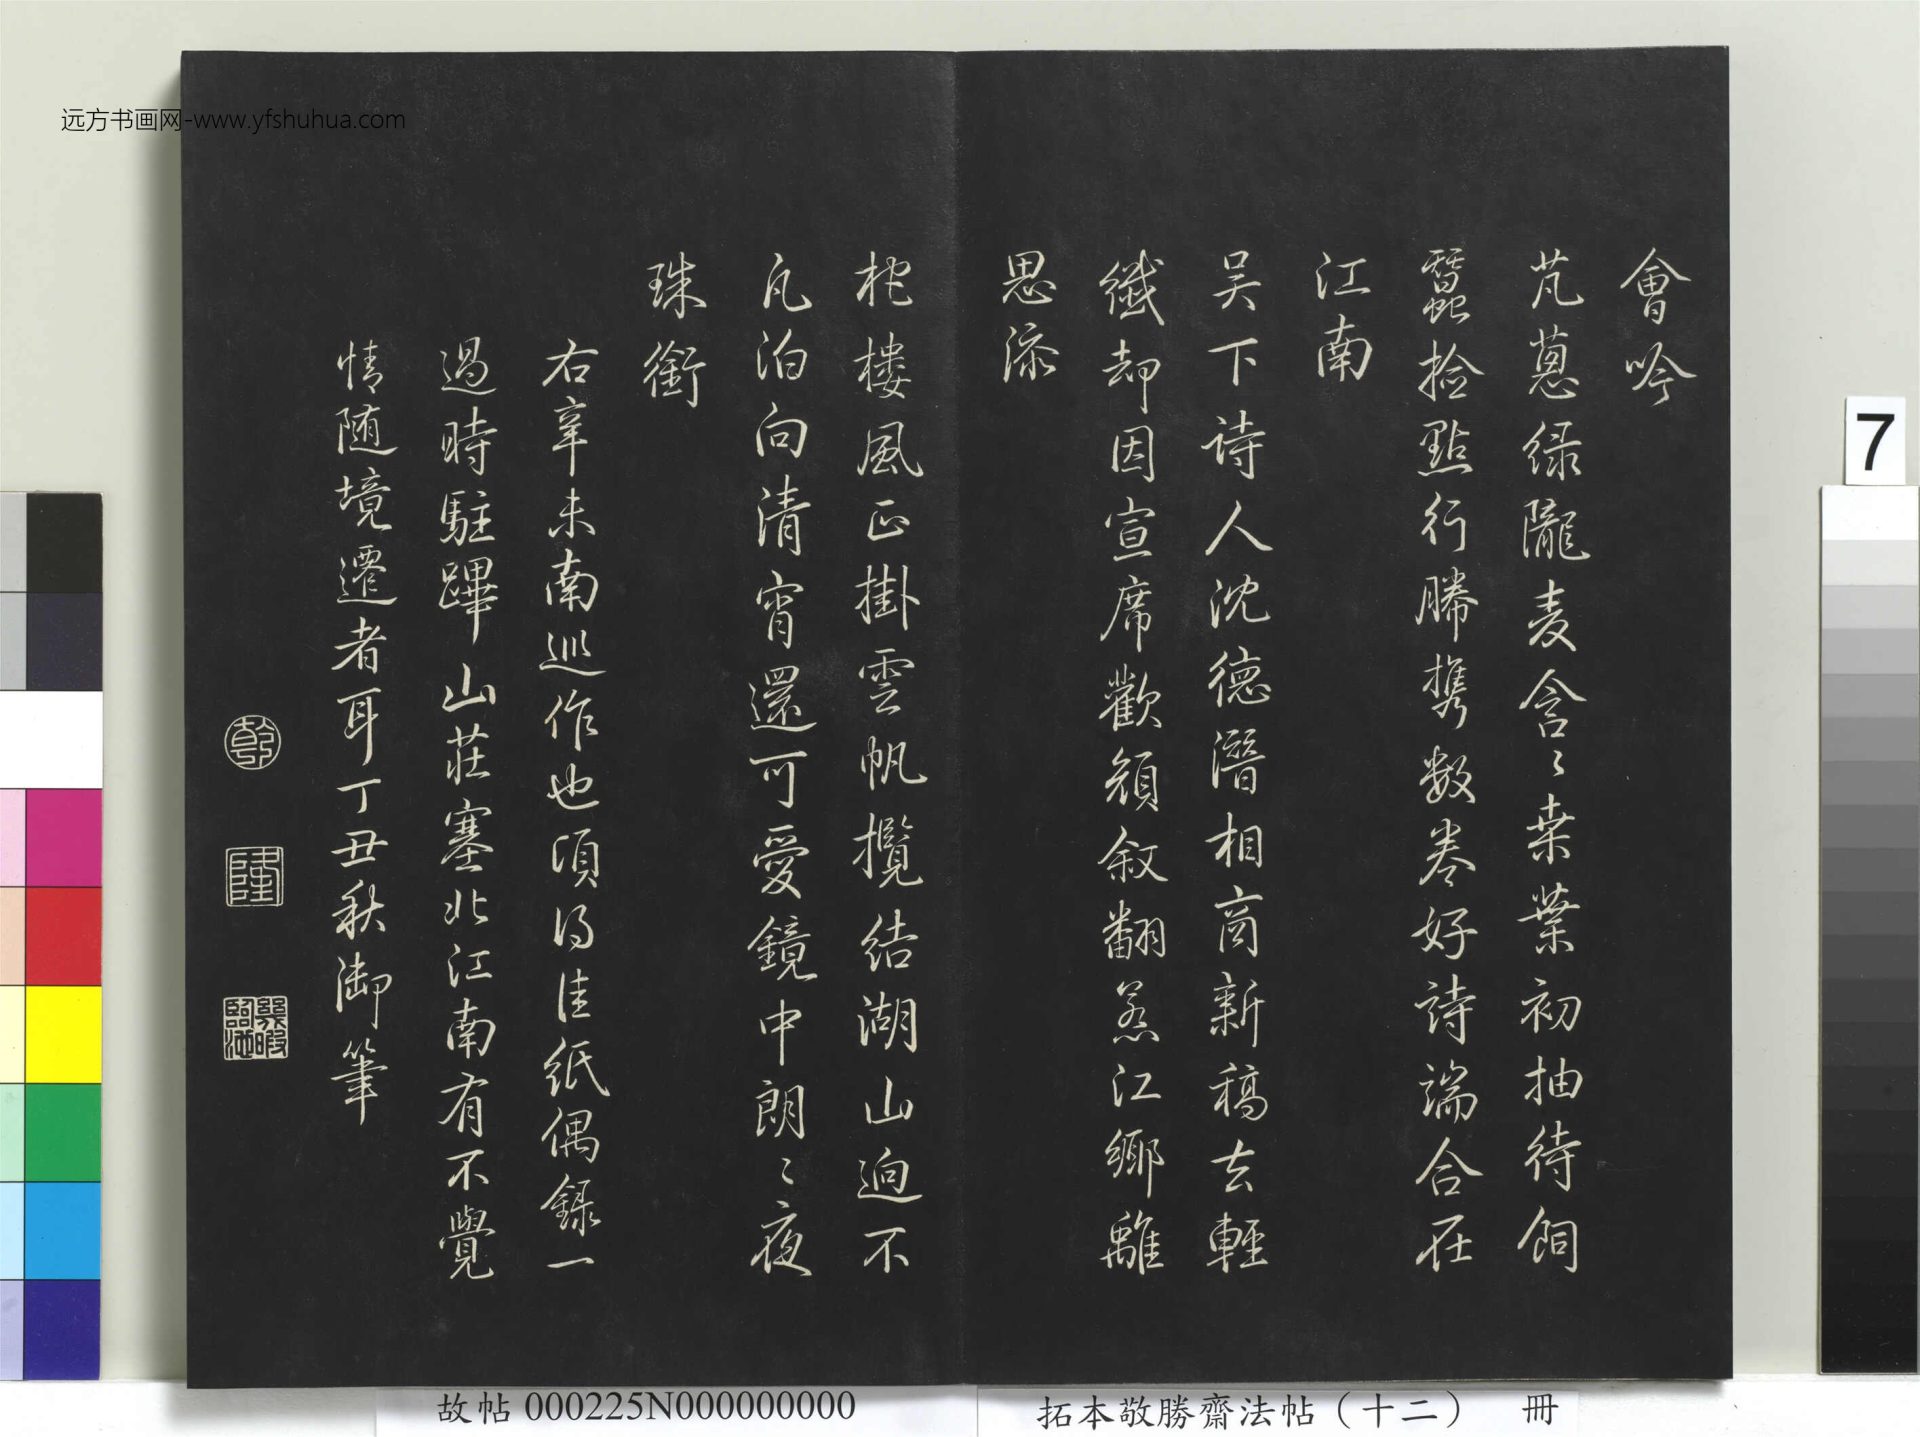 會吟
芃蔥绿隴麦含〻桒葉初抽待飼
蠶捡點行幐携数卷好詩端合在
江南
吴下詩人沈德潛相商新稿去輕
纖却因宣席歡頻叙翻惹江鄉離
思添
柁樓風正掛雲帆攬結湖山迥不
凡泊向清宵還可愛鏡中朗〻夜
珠銜
右辛未南巡作也頃得佳紙偶錄一
過時駐蹕山莊塞北江南有不覺
情随境遷者耳丁丑秋御筆
乾
隆
幾暇臨池
远方书画网-www.yfshuhua.com
7
故帖 000225N000000000
拓本敬勝齋法帖（十二） 冊